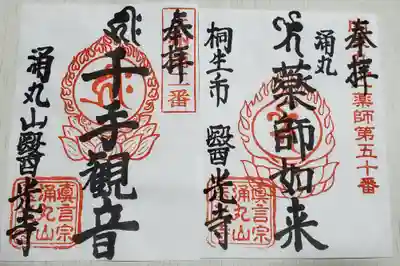 奉拝
薬師第五十番
涌丸
薬師如来
桐生市 醫光寺
真言宗
涌丸山
奉拝
番
千手観音
涌丸山醫光寺
真言宗
涌丸山